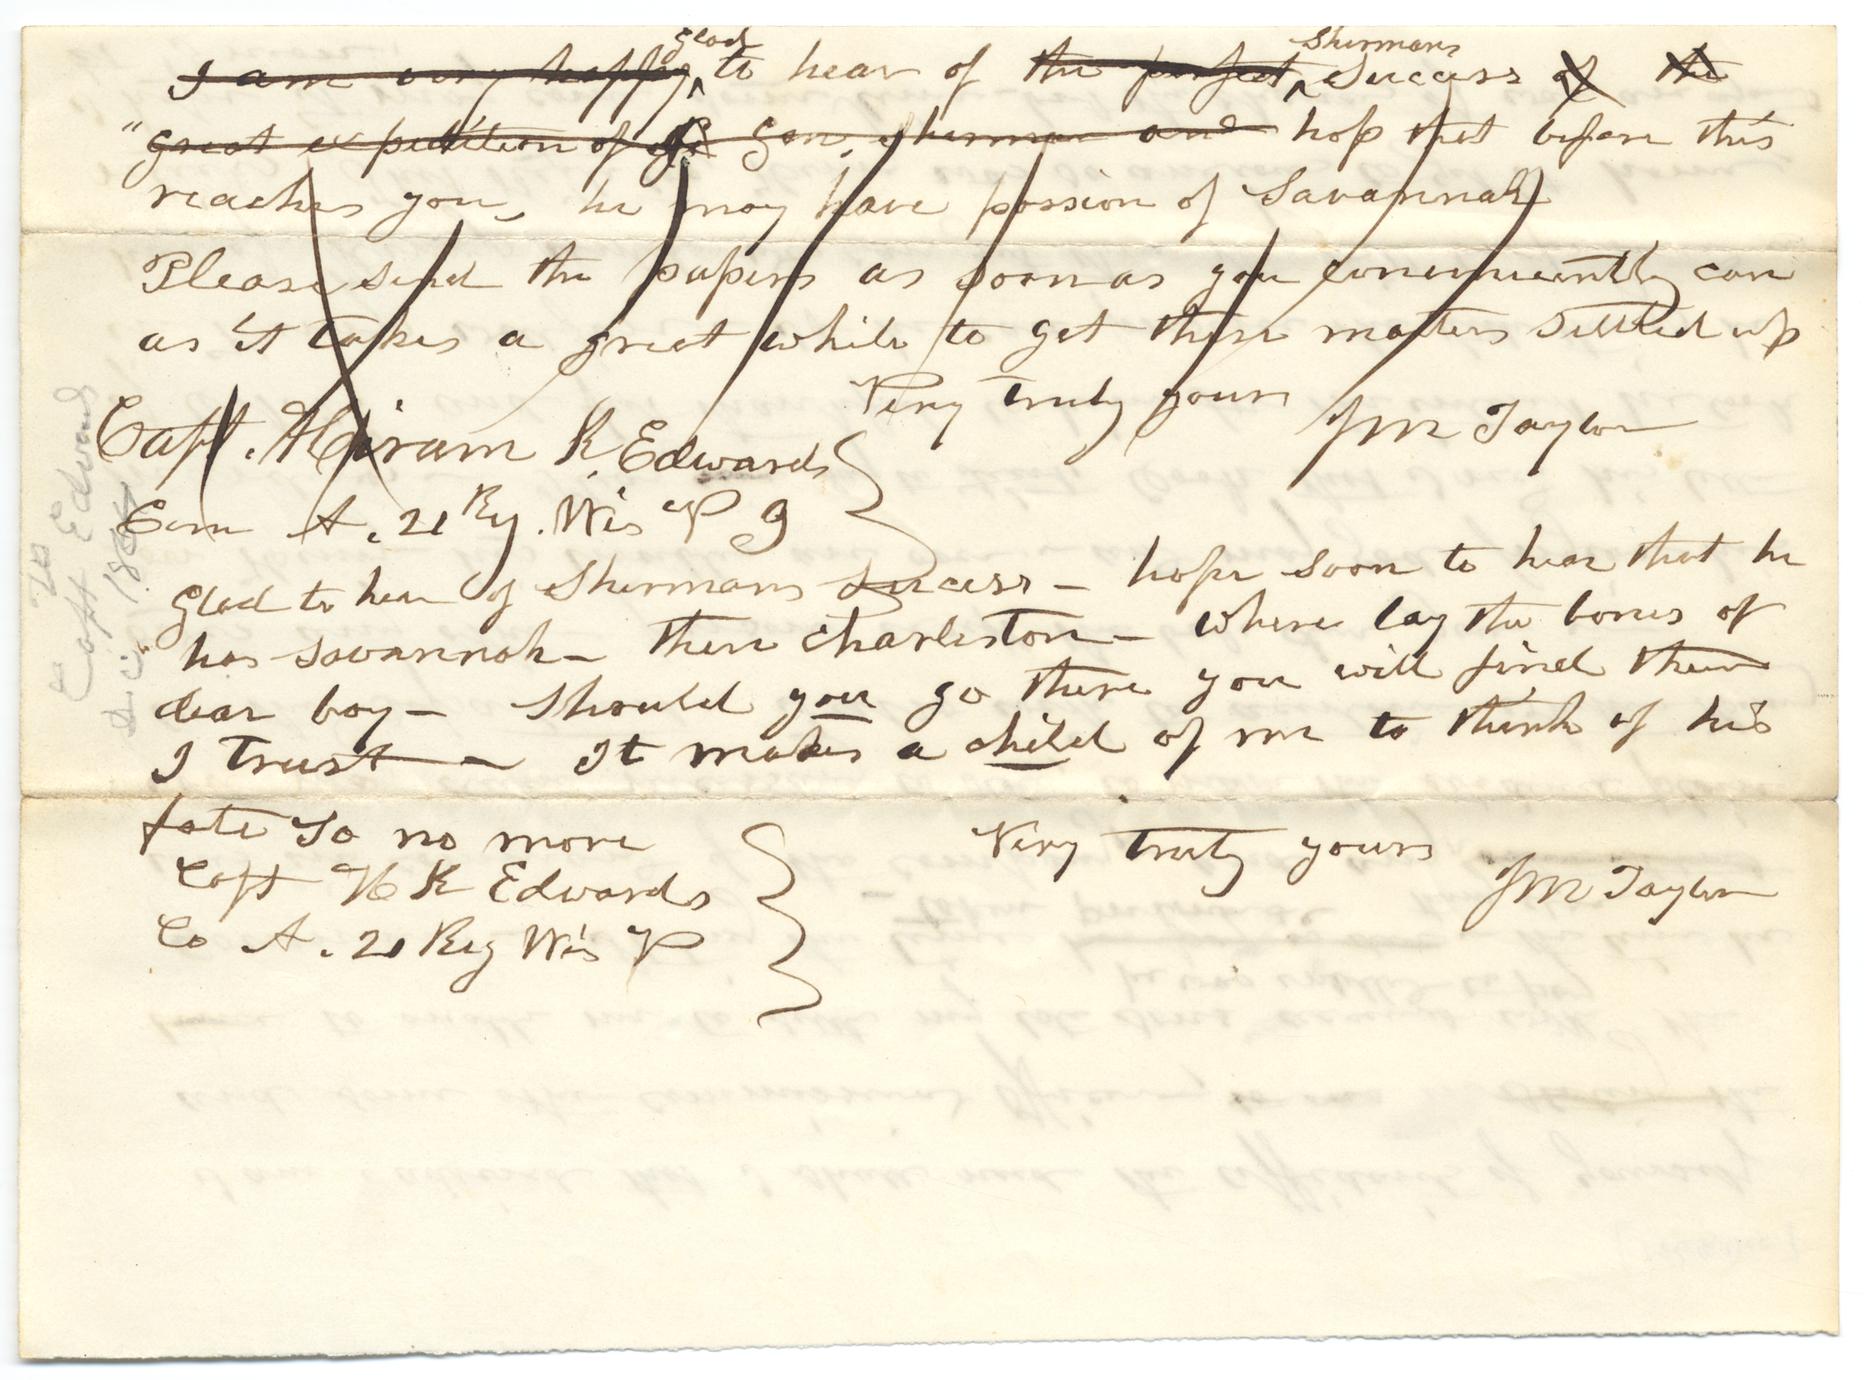 I am very happy glad to hear of the perfect Shermans success of the
"great expedition of Gen. Sherman and hop that before this
reaches you, he may have possion of Savannah
Please send the papers as soon as you conveniently can
as it takes a great while to get these matters settled up
Very truly yours JM Taylor
Capt. Hiram K. Edwards
Com A. 21 Reg. Wis V
Glad to hear of Shermans success - hope soon to hear that he
has Savannah - then Charleston - where lay the bones of
dear boy - Should you go there you will find them
I trust - It makes a child of me to think of his
fate So no more
Very truly yours
JM Taylor
Capt H K Edwards
Co A. 21 Reg Wis V
To
Capt Edwards
Dec. 1864